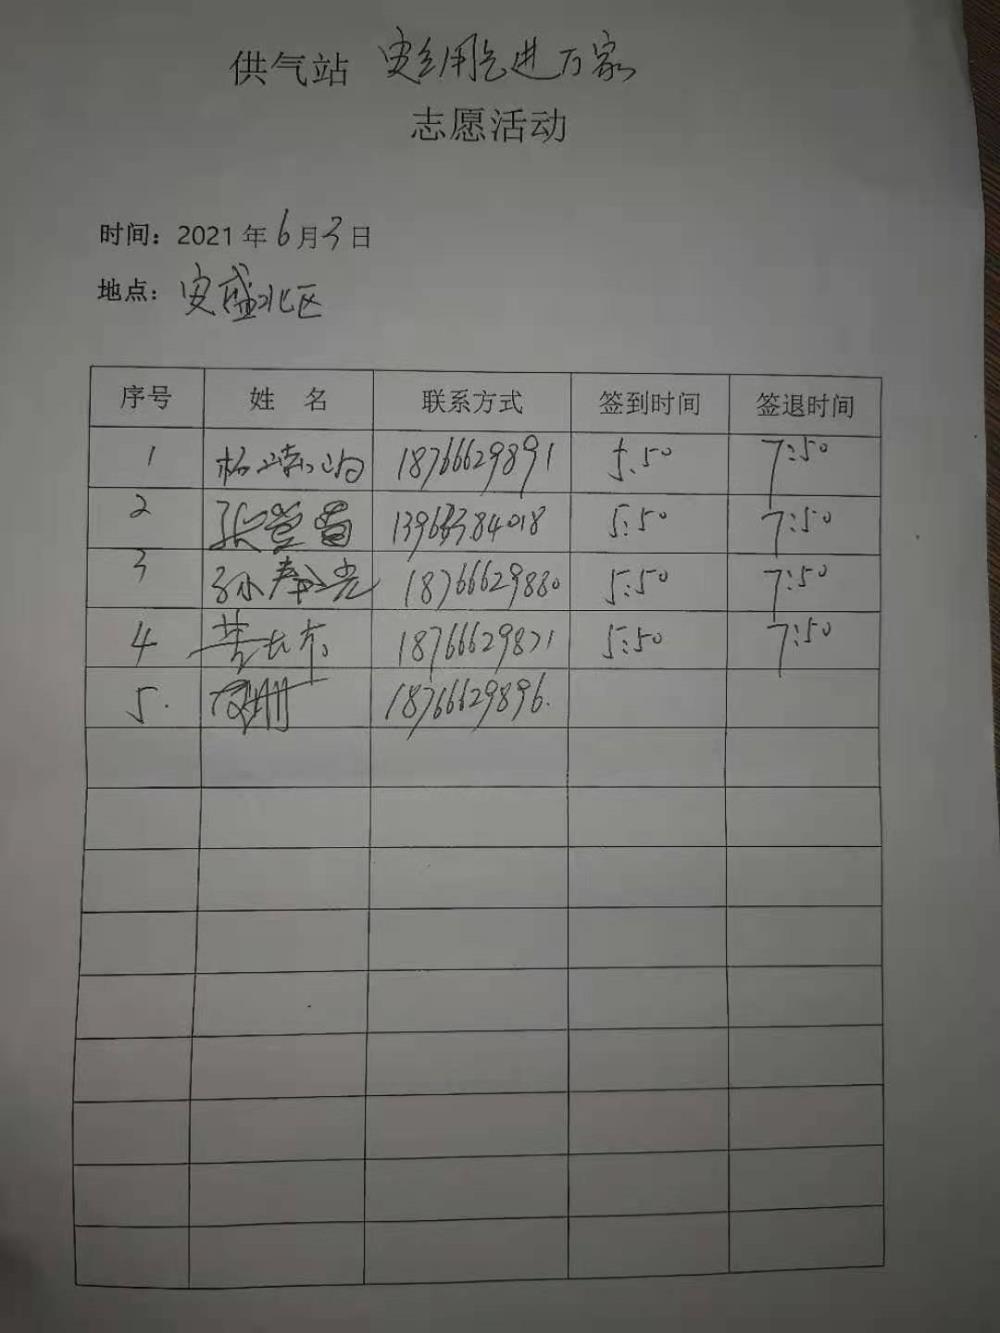 供气站 安全用气进万家
志愿活动
时间：2021年6月3日
地点：安盛北区
序号 姓 名 联系方式 签到时间 签退时间
1 18766629891 5:50 7:50
2 张莹 5:50 7:50
3 孙奉光 18766629880 5:50 7:50
4 18766629821 5:50 7:50
5. 18766629896.